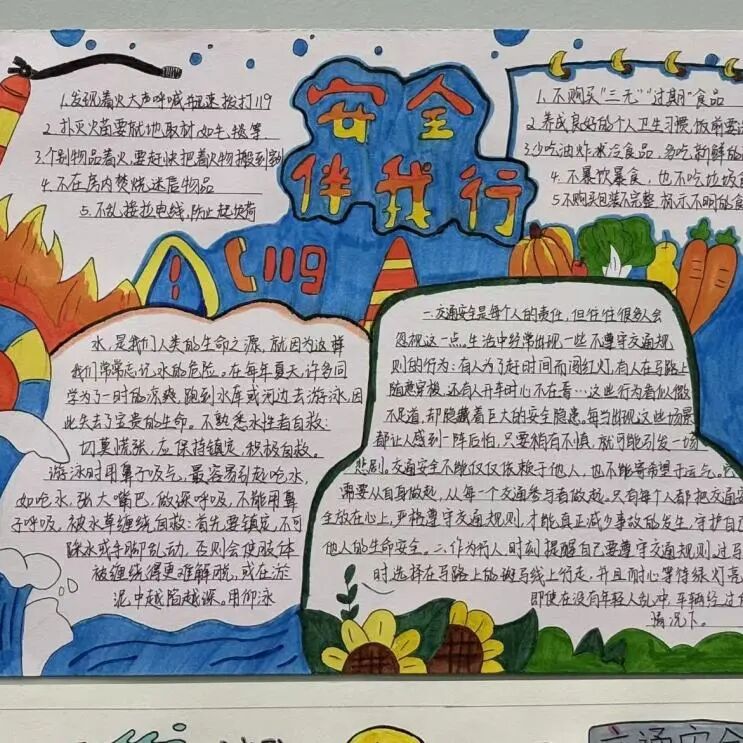 安全
伴我行
1.发现着火大声呼喊,迅速拨打119
2.扑灭火苗要就地取材如毛毯等
3.个别物品着火要赶快把着火物搬到别
4.不在房内焚烧迷信物品
5.不乱接拉电线,防止超负荷
1.不购买"三无""过期"食品
2.养成良好的个人卫生习惯,饭前要
3.少吃油炸冰冷食品,多吃新鲜的
4.不暴饮暴食,也不吃垃圾食
5.不购买包装不完整,标示不明的食
119
水,是我们人类的生命之源,就因为这样
我们常常忘记水的危险。在每年夏天,许多同
学为了一时的凉爽,跑到水库或河边去游泳,因
此失去了宝贵的生命。不熟悉水性者自救:
切莫慌张,应保持镇定,积极自救。
游泳时用鼻子吸气,最容易引起呛水,
如呛水,张大嘴巴,做深呼吸,不能用鼻
子呼吸,被水草缠绕自救:首先要镇定,不可
踩水或手脚乱动,否则会使肢体
被缠绕得更难解脱,或在淤
泥中越陷越深。用仰泳
一.交通安全是每个人的责任,但往往很多人会
忽视这一点。生活中经常出现一些不遵守交通规
则的行为:有人为了赶时间而闯红灯,有人在马路上
随意穿梭,还有人开车时心不在焉…这些行为看似微
不足道,却隐藏着巨大的安全隐患。每当出现这些场景
都让人感到一阵后怕,只要稍有不慎,就可能引发一场
悲剧。交通安全不能仅仅依赖于他人,也不能寄希望于运气。它
需要从自身做起,从每一个交通参与者做起。只有每个人都把交通安
全放在心上,严格遵守交通规则,才能真正减少事故的发生,守护自己
他人的生命安全。二.作为行人,时刻提醒自己要遵守交通规则,过马
时选择在马路上的斑马线上行走,并且耐心等待绿灯亮
即使在没有年轻人乱冲,车辆经过的
情况下。
交通安全